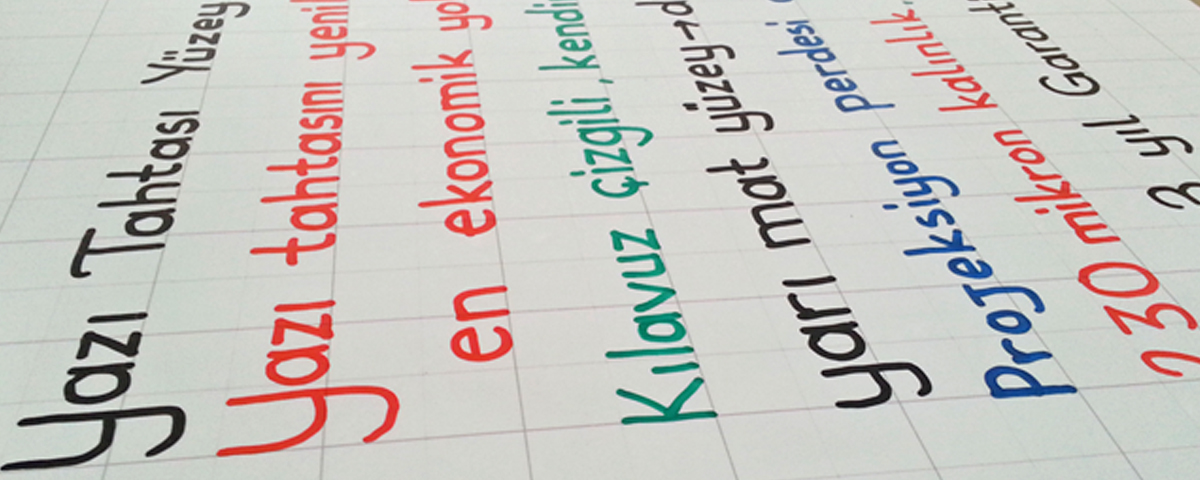 Yazı Tahtası Yüzey
Yazı tahtasını yenil
en ekonomik yol
Kılavuz çizgili, kendi
Yarı mat yüzey→
Projeksiyon perdesi
230 mikron kalınlık
2 yıl Garanti